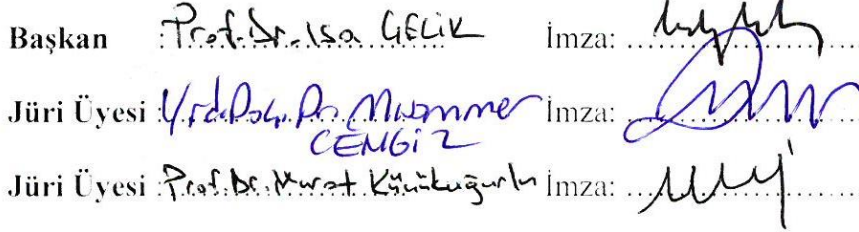 Başkan : Prof. Dr. İsa ÇELİK İmza: ..................
Jüri Üyesi : Yrd. Doç. Dr. Muammer CENGİZ İmza: ..................
Jüri Üyesi : Prof. Dr. Murat Küçükuğurlu İmza: ..................